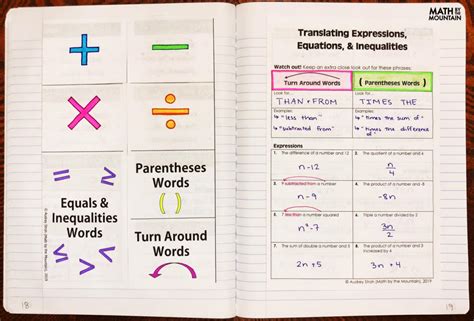 MATH BY THE MOUNTAIN
+
−
×
÷
= < >
≤ ≥
Equals &
Inequalities
Words
Parentheses
Words
( )
Turn Around
Words
18
Translating Expressions,
Equations, & Inequalities
Watch out! Keep an extra close look out for these phrases:
Turn Around Words
( Parentheses Words )
Look for...
THAN + FROM
Examples:
↳ "less than"
↳ "subtracted from"
Look for...
TIMES THE
Examples:
↳ "times the sum of"
↳ "times the difference of"
Expressions
1. The difference of a number and 12
n-12
2. The quotient of a number and 4
n/4
3. 9 subtracted from a number
n-9
4. The product of a number and -8
-8n
5. 7 less than a number squared
n²-7
6. Triple a number divided by 2
3n/2
7. The sum of double a number and 5
2n+5
8. The product of a number and 3 increased by 4
3n+4
© Audrey Stroh (Math by the Mountain), 2019
19